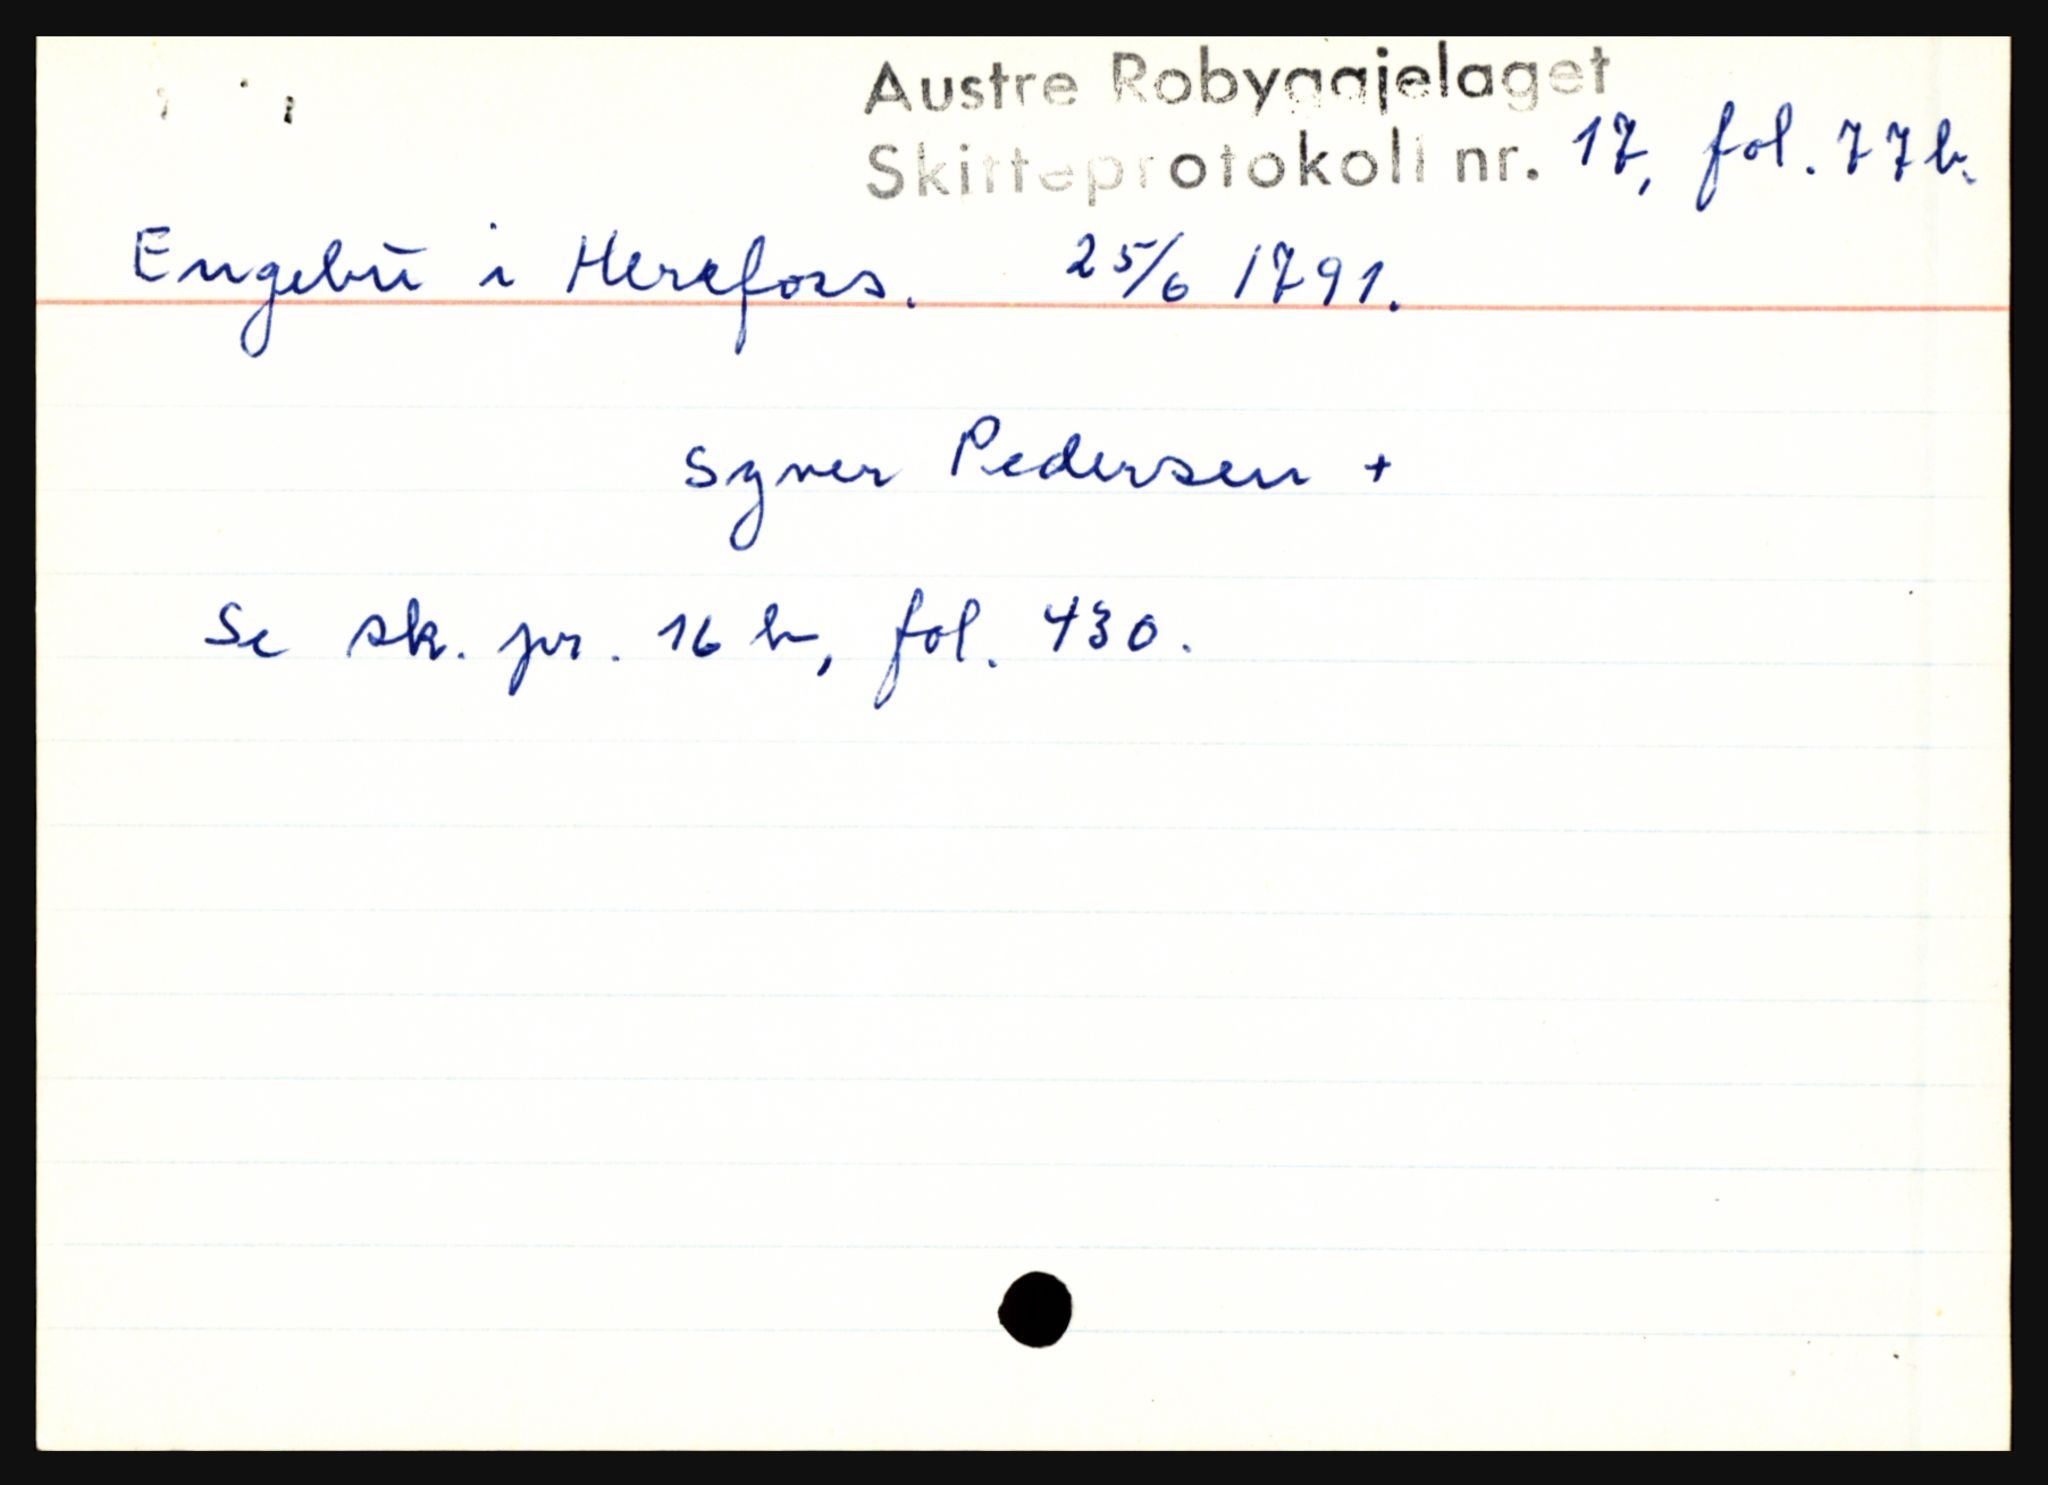 Austre Robyggjelaget
Skifteprotokoll nr. 17, fol. 77b.
Engebu i Herefoss. 25/6 1791.
Syver Pedersen +
Se sk. pr. 16 b, fol. 430.